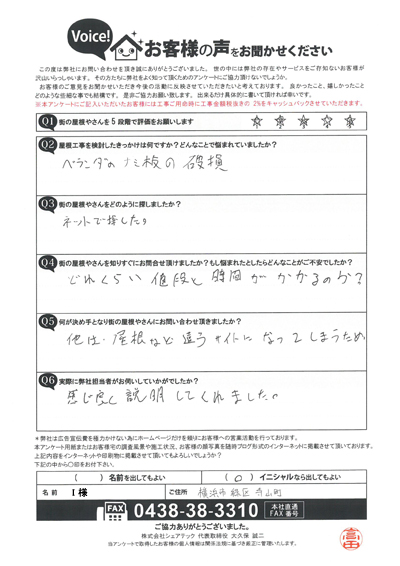 Voice!
お客様の声をお聞かせください
この度は弊社にお問い合わせを頂き誠にありがとうございました。世の中には弊社の存在やサービスをご存知ないお客様が
沢山いらっしゃいます。その方たちに弊社をよく知って頂くためのアンケートにご協力頂けないでしょうか。
お客様のご意見をお聞かせいただき今後の活動に反映させていただきたいと考えております。良かったこと、嬉しかったこと
どのような些細な事でも結構です。是非ご協力お願い致します。出来るだけ具体的に書いて頂ければ幸いです。
※本アンケートにご記入いただいたお客様には工事ご用命時に工事金額税抜きの 2%をキャッシュバックさせていただきます。
Q1 街の屋根やさんを5段階で評価をお願いします ☆ ☆ ☆ ☆ ☆
Q2 屋根工事を検討したきっかけは何ですか?どんなことで悩まれていましたか?
ベランダのナミ板の破損
Q3 街の屋根やさんをどのように探しましたか?
ネットで探した。
Q4 街の屋根やさんを知りすぐにお問合せ頂けましたか?もし悩まれたとしたらどんなことがご不安でしたか?
どれくらい値段と時間がかかるのか?
Q5 何が決め手となり街の屋根やさんにお問い合わせ頂きましたか?
他は、屋根など違うサイトになってしまうため
Q6 実際に弊社担当者がお伺いしていかがでしたか?
感じ良く説明してくれました。
*弊社は広告宣伝費を極力かけない為にホームページだけを頼りにお客様への営業活動を行っております。
本アンケート用紙またはお客様宅の調査風景や施工状況、お客様の顔写真を随時ブログ形式のインターネットに掲載させて頂いております。
上記内容をインターネットや印刷物に掲載させて頂いてもよろしいでしょうか?
下記の中から○印をお付下さい。
( ) 名前を出してもよい ( ○ ) イニシャルなら出してもよい
名前 I様 ご住所 横浜市緑区寺山町
FAX 0438-38-3310 本社直通 FAX番号
ご協力ありがとうございました。
株式会社シェアテック 代表取締役 大久保 誠二
当アンケートで取得したお客様の個人情報は関係法規に基づき厳正に管理いたします。